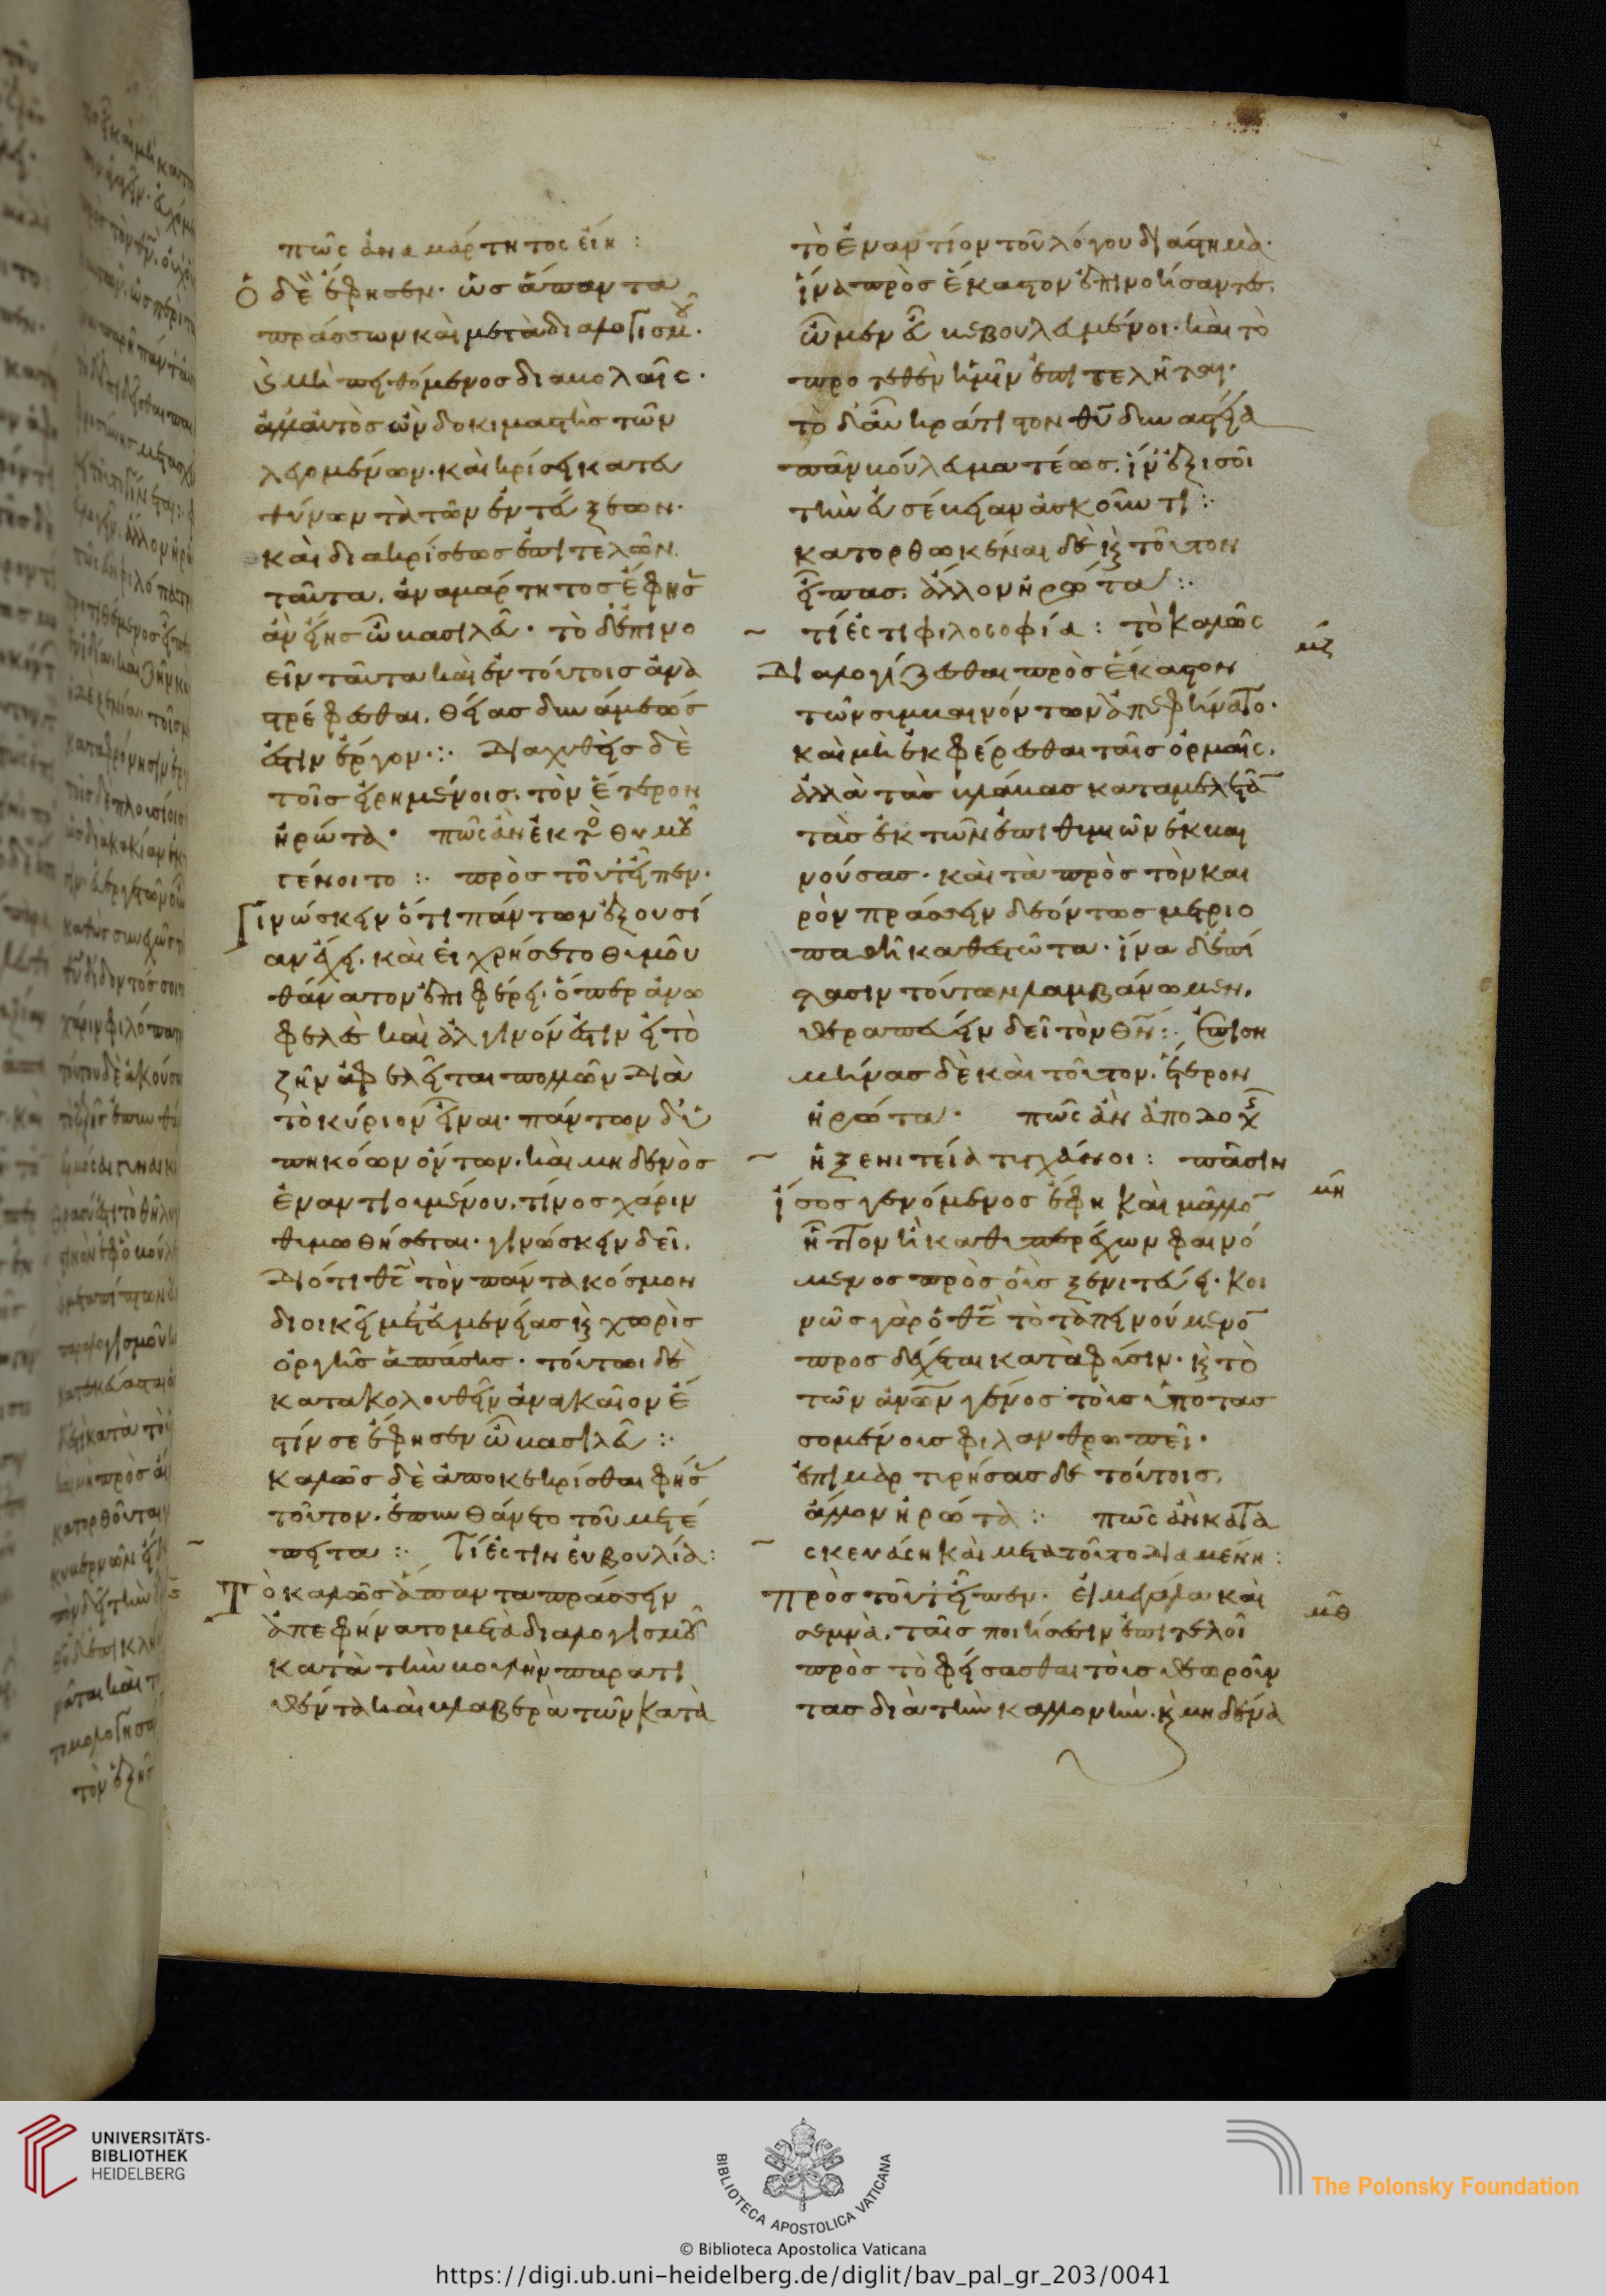 πῶς ἀναμάρτητος εἴη :
Ὁ δὲ ἔφησεν· ὡς ἅπαντα
πράσσων καὶ μετὰ διαλογισμοῦ·
καὶ μὴ πειθόμενος διαβολαῖς·
ἀλλαὐτὸς ὢν δοκιμαστὴς τῶν
λεγομένων· καὶ κρίσει κατευ
θύνων τὰ τῶν ἐντεύξεων·
καὶ διακρίσεως ἐπιτελῶν
ταῦτα, ἀναμάρτητος ἔφησ
ἂν εἴης ὦ βασιλεῦ· τὸ δἐπινο
εῖν ταῦτα καὶ ἐν τούτοις ἀνα
στρέφεσθαι, θείας δυνάμεώς
ἐστιν ἔργον :· Διαχυθεὶς δὲ
τοῖς εἰρημένοις, τὸν ἕτερον
ἠρώτα· πῶς ἂν ἐκτὸ θυμοῦ
γένοιτο :· πρὸς τοῦτ εἶπεν·
Γινώσκειν ὅτι πάντων ἐξουσί
αν ἔχει· καὶ εἰ χρήσετο θυμοῦ
θάνατον ἐπιφέρει· ὅπερ ἀνω
φελὲς καὶ ἀλγινόν ἐστιν εἰ τὸ
ζῆν ἀφελεῖται πολλῶν διὰ
τὸ κύριον εἶναι· πάντων δὑ
πηκόων ὄντων· καὶ μηδενὸς
ἐναντιουμένου, τίνος χάριν
θυμωθήσεται· γινώσκειν δεῖ,
διότι θς τὸν πάντα κόσμον
διοικεῖ μετεὐμενείας καὶ χωρὶς
ὀργῆς ἁπάσης· τούτωι δὲ
κατακολουθεῖν ἀναγκαῖον ἐ
στίν σε ἔφησεν ὦ βασιλεῦ :·
καλῶς δὲ ἀποκεκρίσθαι φήσ
τοῦτον, ἐπυνθάνετο τοῦ μετέ
πειτα :· Τί ἐστιν εὐβουλία :
Τὸ καλῶς ἅπαντα πράσσειν
ἀπεφήνατο μετὰ διαλογισμοῦ
κατὰ τὴν βουλὴν παρατι
θέντα καὶ βλαβερὰ τῶν κατὰ
τὸ ἐναντίον τοῦ λόγου διάστημα·
ἵνα πρὸς ἕκαστον ἐπινοήσαντες,
ὦμεν εὖ βεβουλευμένοι· καὶ τὸ
προτεθὲν ἡμῖν ἐπιτελῆται·
τὸ δαὖ κράτιστον θυ δυναστεία
πᾶν βούλευμα τέως, ἵν ἐξισοῖ
τὴν εὐσέβειαν ἀσκοῦντι :·
κατορθωκέναι δὲ καὶ τοῦτον
εἶπας, ἄλλον ἠρώτα :·
τί ἐστι φιλοσοφία : τὸ καλῶς
διαλογίζεσθαι πρὸς ἕκαστον
τῶν συμβαινόντων ἀπεφήνατο·
καὶ μὴ ἐκφέρεσθαι ταῖς ὁρμαῖς,
ἀλλὰ τὰς βλάβας καταμελετᾶ
τὰς ἐκ τῶν ἐπιθυμιῶν ἐκβαι
νούσας· καὶ τὰ πρὸς τὸν και
ρὸν πράσσειν δεόντως μετριο
παθῆ καθεστῶτα· ἵνα δἐπί
στασιν τούτων λαμβάνωμεν,
θεραπεύειν δεῖ τὸν θν :· Ἐπιση
μήνας δὲ καὶ τοῦτον, ἕτερον
ἠρώτα· πῶς ἂν ἀποδοχς
ἡ ξενιτεία τυγχάνοι : πᾶσιν
ἴσος γενόμενος ἔφη καὶ μᾶλλο
ἥττον ἢ καθυπερέχων φαινό
μενος πρὸς οὓς ξενιτεύει· κοι
νῶς γὰρ ὁ θς τὸ ταπεινούμενο
προσδέχεται κατὰ φύσιν· καὶ τὸ
τῶν ἀνων γένος τοὺς ὑποτασ
σομένους φιλανθρωπεῖ·
ἐπιμαρτυρήσας δὲ τούτοις,
ἄλλον ἠρώτα :· πῶς ἂν κατα
σκευάση καὶ μετὰ τοῦτο διαμένη :
πρὸς τοῦτ εἶπεν· εἰ μεγάλα καὶ
σεμνὰ, ταῖς ποιήσεσιν ἐπιτελοῖ
πρὸς τὸ φείσασθαι τοὺς θεωροῦν
τας διὰ τὴν καλλονήν· καὶ μηδένα
μζ
μη
μθ
UNIVERSITÄTS-
BIBLIOTHEK
HEIDELBERG
BIBLIOTECA APOSTOLICA VATICANA
The Polonsky Foundation
© Biblioteca Apostolica Vaticana
https://digi.ub.uni-heidelberg.de/diglit/bav_pal_gr_203/0041